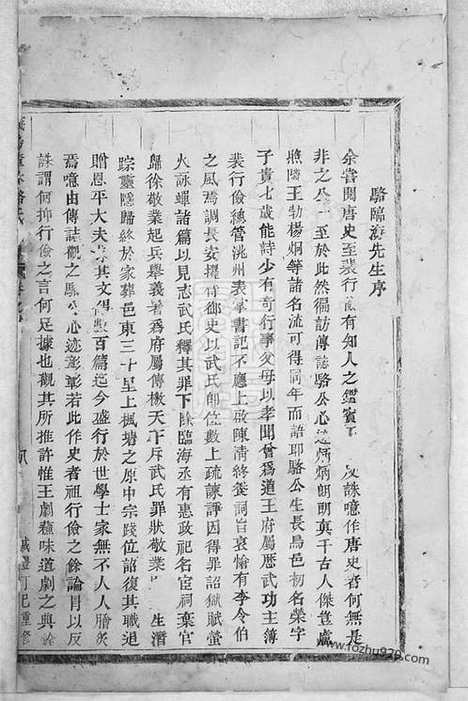 駱臨海先生序
余嘗閱唐史至裴行儉有知人之鑑賓王 反誅噫作唐史者何無是
非之公 至於此然徧訪傳誌駱公心迹炳炳朗朗真千古人傑豈盧
照隣王勃楊炯等諸名流可得同年而語耶駱公生長烏邑初名榮字
子貴七歲能詩少有奇行事父母以孝聞曾為道王府屬歷武功主簿
裴行儉總管洮州表掌書記不應上啟陳情終養詞旨哀愉有李令伯
之風焉調長安擢侍御史以武氏即位數上疏諫諍因得罪詔獄賦螢
火詠蟬諸篇以見志武氏釋其罪下除臨海丞有惠政祀名宦祠棄官
歸徐敬業起兵舉義署為府屬傳檄天下斥武氏罪狀敬業 生潛
踪靈隱歸終於家葬邑東三十里上楓塘之原中宗踐位詔復其職追
贈恩平大夫 其文得數百篇迄今盛行於世學士家無不人人膾炙
焉噫由傳誌觀之駱公心迹彰彰若此作史者祖行儉之餘論目以反
誅謂何抑行儉之言何足據也觀其所推許惟王劇蘇味道劇之與
咸豐丁巳重修
www.fozhu920.com